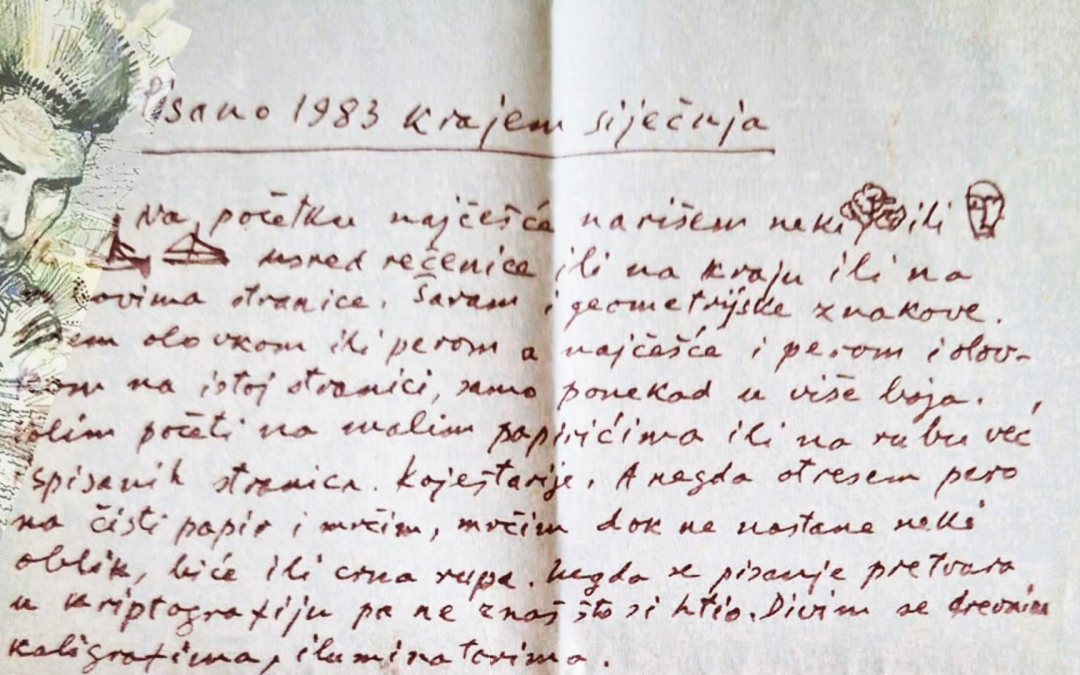 Pisano 1983 krajem siječnja
Na početku najčešće narišem neki ili
usred rečenice ili na kraju ili na
ovima stranice. Šaram i geometrijske znakove.
em olovkom ili perom a najčešće i perom i olov-
om na istoj stranici, samo ponekad u više boja.
olim početi na malim papirićima ili na rubu već
spisanih stranica. Koještarije. A negda otresem pero
na čisti papir i mrčim, mrčim dok ne nastane neki
oblik, biće ili crna rupa. Negda se pisanje pretvara
u kriptografiju pa ne znaš što si htio. Divim se drevnim
kaligrafima, iluminatorima.